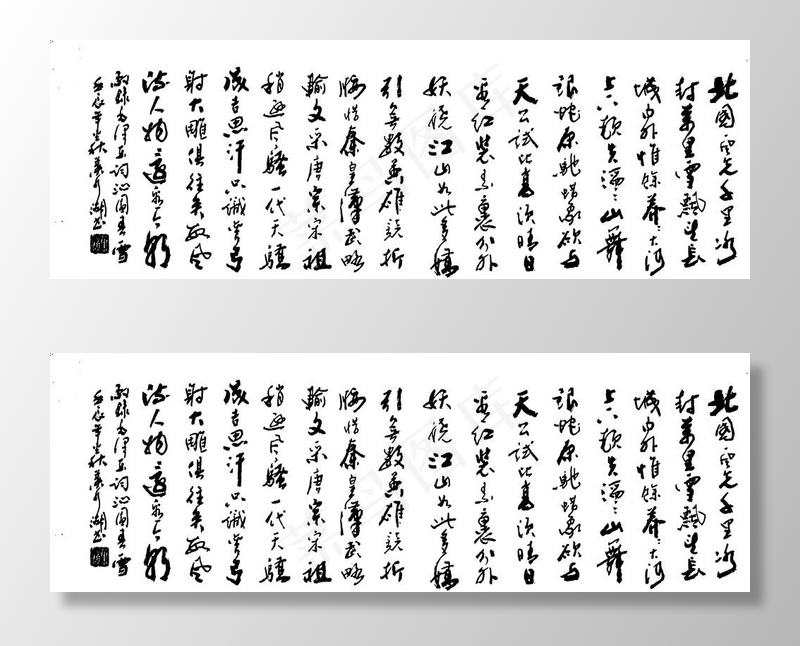 北國风光千里冰
封萬里雪飄望長
城内外惟餘莽莽大河
上下顿失滔滔山舞
银蛇原馳蜡象欲与
天公試比高须晴日
看红装素裹分外
妖嬈江山如此多嬌
引無數英雄競折
腰惜秦皇漢武略
輸文采唐宗宋祖
稍逊风騷一代天驕
成吉思汗只識彎弓
射大雕俱往矣数风
流人物還看今朝
毛泽东词沁园春雪
北國风光千里冰
封萬里雪飄望長
城内外惟餘莽莽大河
上下顿失滔滔山舞
银蛇原馳蜡象欲与
天公試比高须晴日
看红装素裹分外
妖嬈江山如此多嬌
引無數英雄競折
腰惜秦皇漢武略
輸文采唐宗宋祖
稍逊风騷一代天驕
成吉思汗只識彎弓
射大雕俱往矣数风
流人物還看今朝
毛泽东词沁园春雪